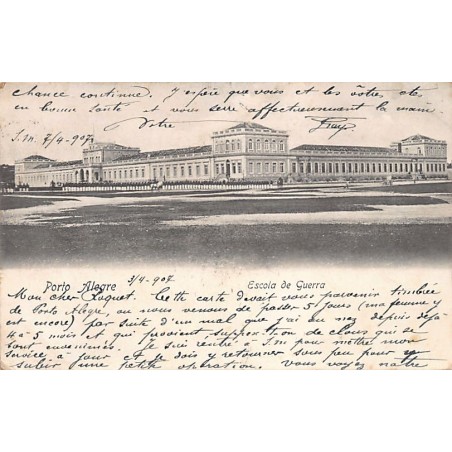 chance continue. J'espère que vous et les vôtres êtes
en bonne santé et vous serre affectueusement la main
Votre
S.M. 7/4 907
Porto Alegre 3/4-907 Escola de Guerra
Mon cher Roquet. Cette carte devait vous parvenir timbrée
de Porto Alegre, où nous venons de passer 5 jours (ma femme y
est encore) par suite d'un mal que j'ai au nez depuis déjà
4 à 5 mois et qui provient supposition de clous qui se
sont envenimés. Je suis rentré à S.M pour mettre mon
service à jour et je dois y retourner sous peu pour y
subir une petite opération. Vous voyez nôtre